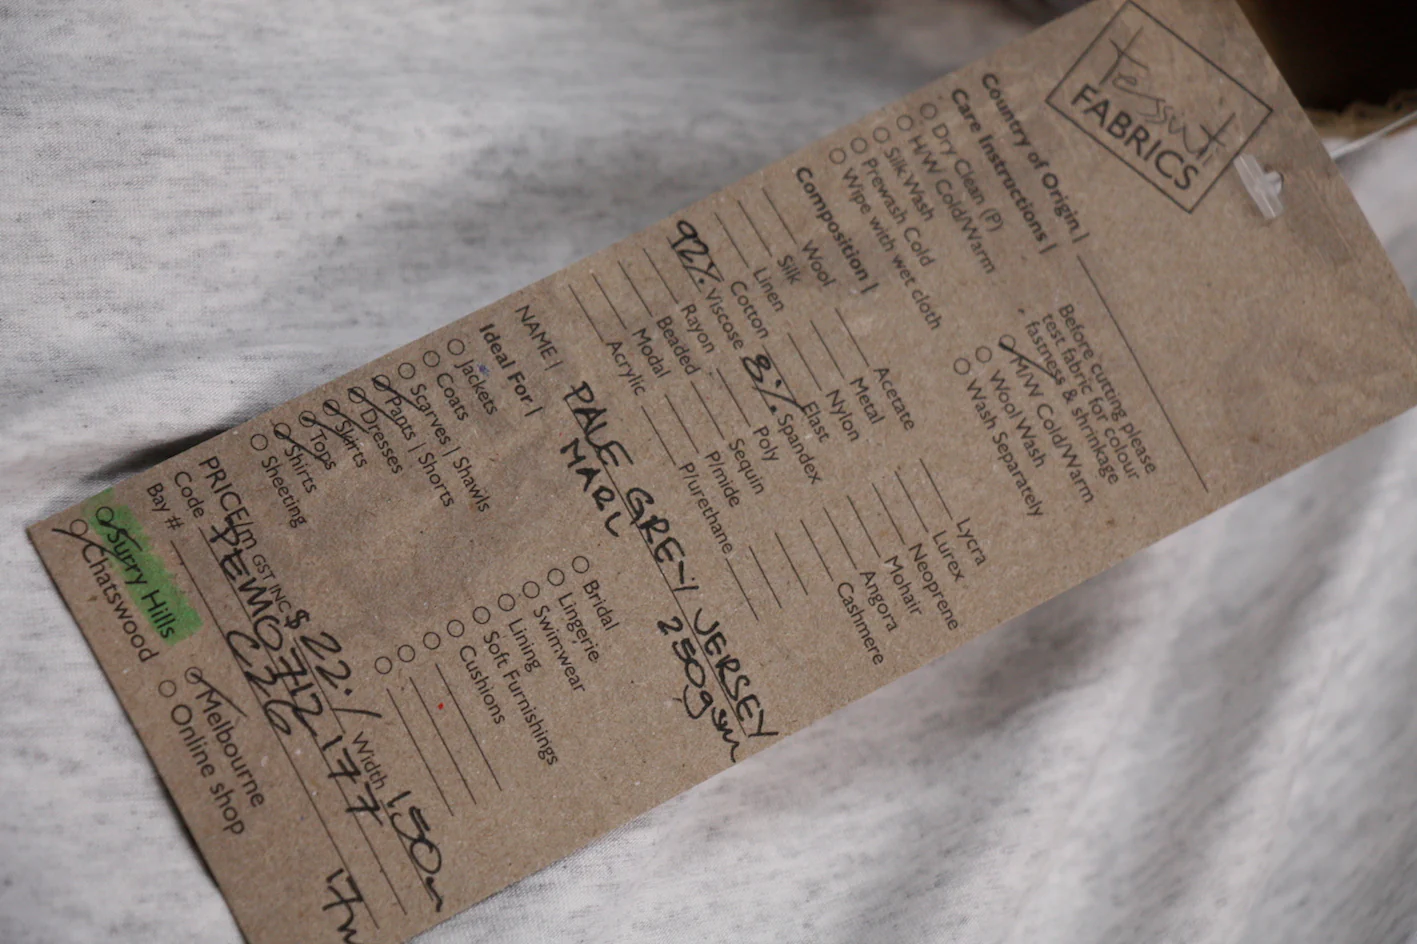 Tessuti
FABRICS
Country of Origin |
Care Instructions |
Dry Clean (P)
H/W Cold/Warm
Silk Wash
Prewash Cold
Wipe with wet cloth
Before cutting please
test fabric for colour
fastness & shrinkage
M/W Cold/Warm
Wool Wash
Wash Separately
Composition |
Wool
Silk
Linen
Cotton
92% Viscose
Rayon
Beaded
Modal
Acrylic
Acetate
Metal
Nylon
Elast
8% Spandex
Poly
Sequin
P/mide
P/urethane
Lycra
Lurex
Neoprene
Mohair
Angora
Cashmere
NAME | PALE GREY JERSEY
MARL 250gsm
Ideal For |
Jackets
Coats
Scarves | Shawls
Pants | Shorts
Dresses
Skirts
Tops
Shirts
Sheeting
Bridal
Lingerie
Swimwear
Lining
Soft Furnishings
Cushions
PRICE/m GST INC $ 22./ Width 150m
Code
Bay # C26
17m
Surry Hills
Chatswood
Melbourne
Online shop